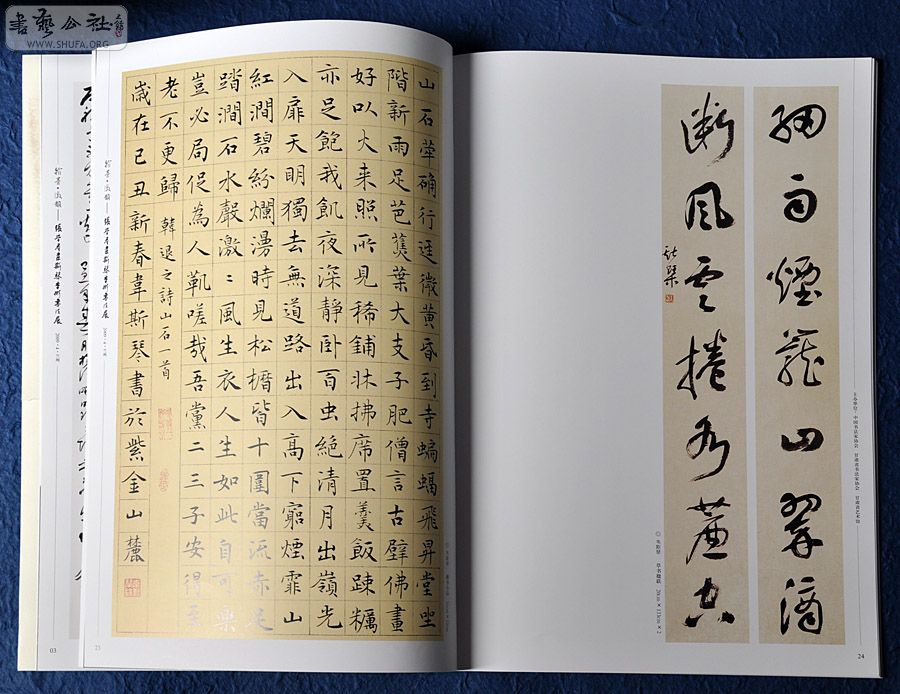 書藝公社
WWW.SHUFA.ORG
細雨煙籠山翠滴
斷風雲捲水簾空
斯琴
◎ 韦斯琴 草书楹联
24
山石犖确行逕微黄昏到寺蝙蝠飛昇堂坐
階新雨足芭蕉葉大支子肥僧言古壁佛畫
好以火来照所見稀鋪牀拂席置羹飯踈糲
亦足飽我飢夜深靜卧百虫絶清月出嶺光
入扉天明獨去無道路出入高下窮煙霏山
紅澗碧紛爛漫時見松櫪皆十圍當流赤足
踏澗石水聲激〻風生衣人生如此自可樂
豈必局促為人鞿嗟哉吾黨二三子安得至
老不更歸 韓退之詩山石一首
歲在己丑新春韋斯琴書於紫金山麓
23
03